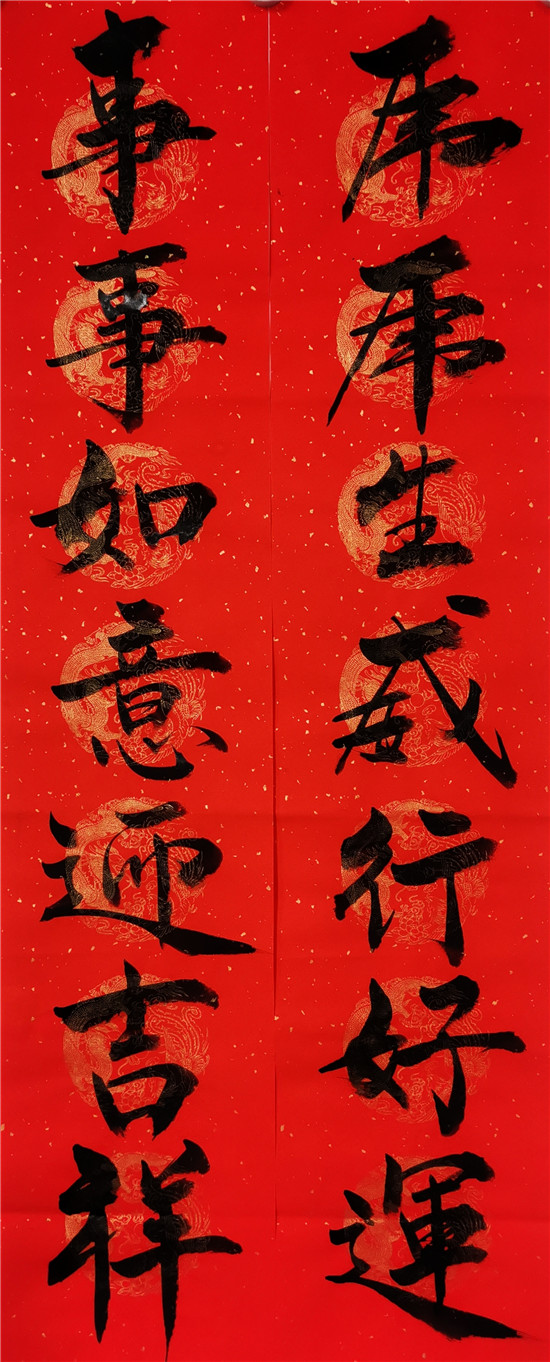 虎虎生威行好運
事事如意迎吉祥